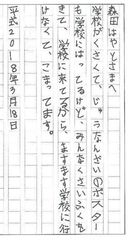 森田はやとさまへ
学校がくさくて、じゅうなんざいのポスター
も学校にはってるけど、みんなくさいふくを
きて、学校に来てるから、ますます学校に行
けなくて、こまってます。
平成2018年3月18日